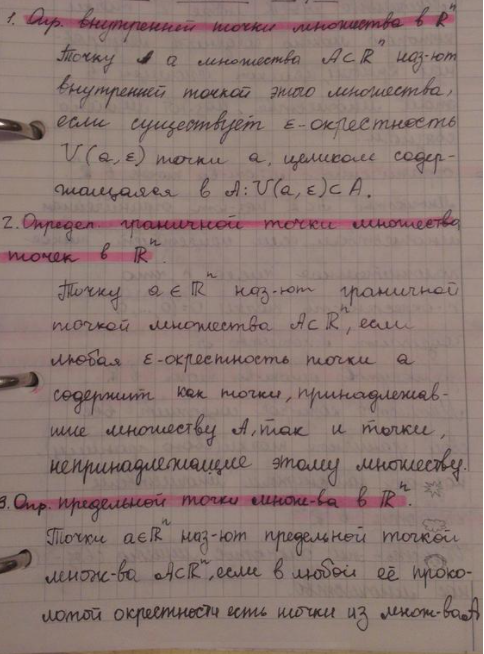 1. Опр. внутренней точки множества в ℝⁿ
Точку а множества А⊂ℝⁿ наз-ют
внутренней точкой этого множества,
если существует ε-окрестность
U(a,ε) точки а, целиком содер-
жащаяся в А: U(a,ε)⊂A.
2. Определ. граничной точки множества
точек в ℝⁿ.
Точку а∈ℝⁿ наз-ют граничной
точкой множества А⊂ℝⁿ, если
любая ε-окрестность точки а
содержит как точки, принадлежав-
шие множеству А, так и точки,
непринадлежащие этому множеству.
3. Опр. предельной точки множ-ва в ℝⁿ.
Точки а∈ℝⁿ наз-ют предельной точкой
множ-ва А⊂ℝⁿ, если в любой её проко-
лотой окрестности есть точки из множ-ва А